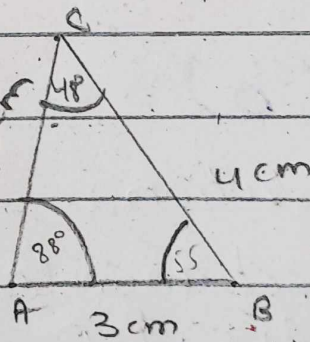 C
48°
4 cm
88°
55
A
B
3 cm